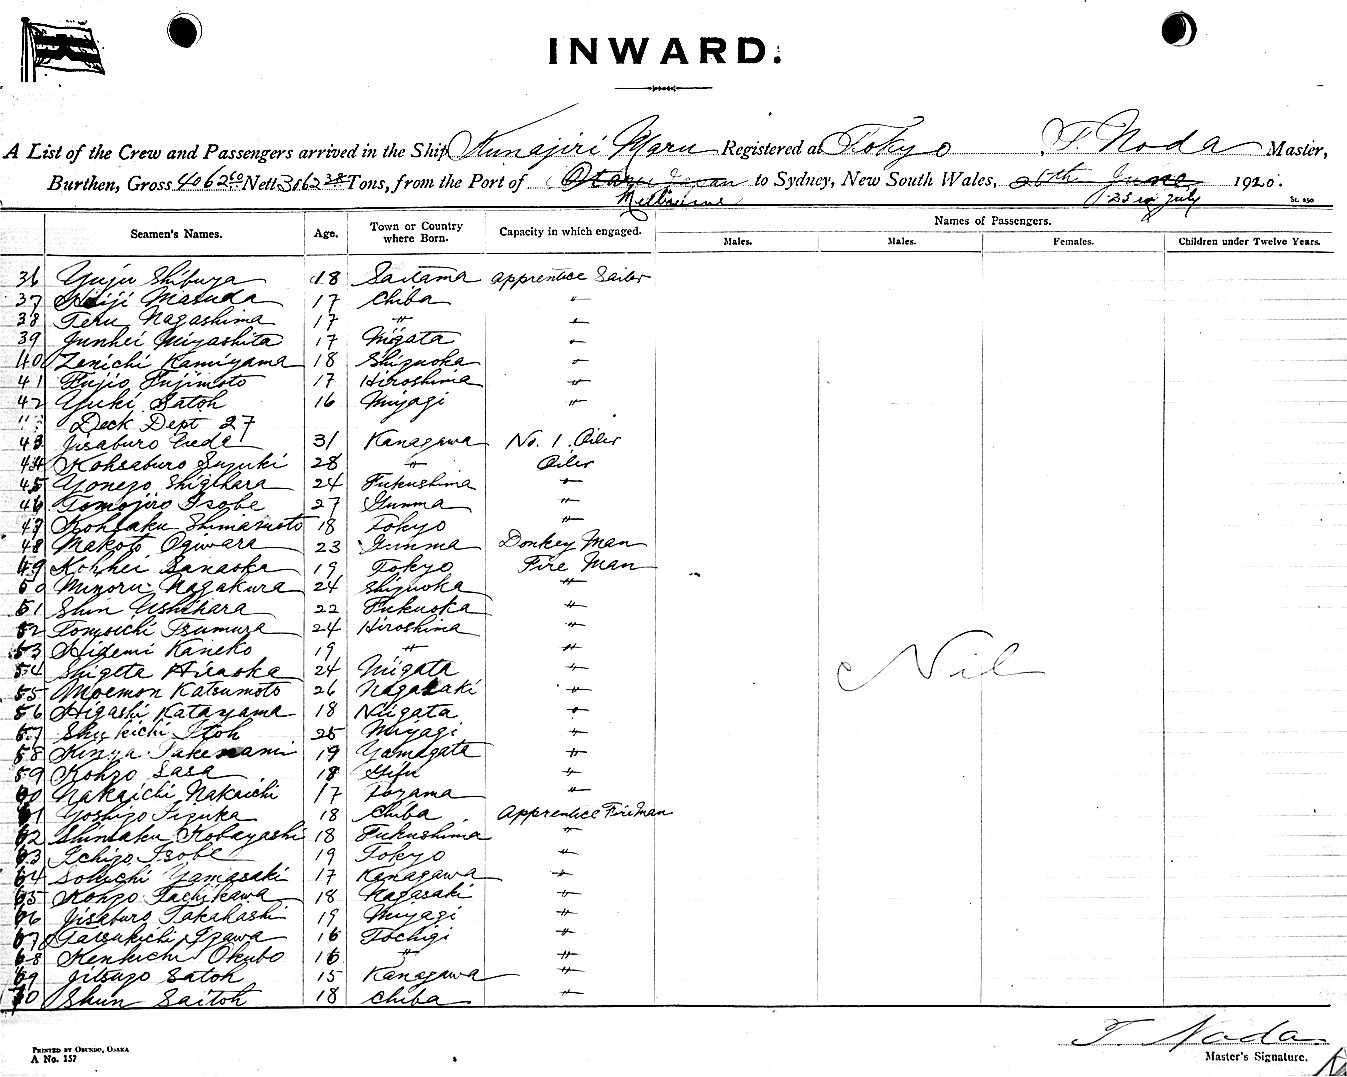 INWARD.
A List of the Crew and Passengers arrived in the Ship Kunajiri Maru Registered at Tokyo, T Noda Master,
Burthen, Gross 4062.60 Nett 3162.38 Tons, from the Port of Otaru Japan to Sydney, New South Wales, 26th June 1920.
Melbourne 23rd July
Seamen's Names. Age. Town or Country where Born. Capacity in which engaged. Names of Passengers.
Males. Males. Females. Children under Twelve Years.
36 Yuju Shibuya 18 Saitama apprentice Sailor
37 Heiji Masuda 17 Chiba "
38 Teru Nagashima 17 " "
39 Junhei Miyashita 17 Niigata "
40 Zenichi Kamiyama 18 Shizuoka "
41 Fujio Fujimoto 17 Hiroshima "
42 Yuki Satoh 16 Miyagi "
Deck Dept 27
43 Jisaburo Ueda 31 Kanagawa No. 1 Oiler
44 Kohsaburo Suzuki 28 " Oiler
45 Yonezo Shigihara 24 Fukushima "
46 Tomojiro Isobe 27 Gunma "
47 Kohsaku Shimamoto 18 Tokyo "
48 Makoto Ogiwara 23 Gunma Donkey Man
49 Kohhei Sanaoka 19 Tokyo Fire Man
50 Minoru Nagakura 24 Shizuoka "
51 Shin Ushihara 22 Fukuoka "
52 Tomoichi Tsumura 24 Hiroshima "
53 Hidemi Kaneko 19 " "
54 Shigeta Hiraoka 24 Niigata "
55 Moemon Katsumoto 26 Nagasaki "
56 Higashi Katayama 18 Niigata "
57 Shukichi Itoh 25 Miyagi "
58 Kinya Takenami 19 Yamagata "
59 Kohzo Sasa 18 Gifu "
60 Nakaichi Nakaichi 17 Toyama "
61 Yoshizo Iizuka 18 Chiba apprentice Fireman
62 Shinsaku Kobayashi 18 Fukushima "
63 Ichizo Isobe 19 Tokyo "
64 Sohichi Yamasaki 17 Kanagawa "
65 Kohzo Tachikawa 18 Nagasaki "
66 Jisaburo Takahashi 19 Miyagi "
67 Tatsukichi Izawa 16 Tochigi "
68 Kenkichi Okubo 16 " "
69 Jitsuzo Satoh 15 Kanagawa "
70 Shun Saitoh 18 Chiba "
Nil
T. Noda
Master's Signature.
PRINTED BY OBUNDO, OSAKA
A No. 157